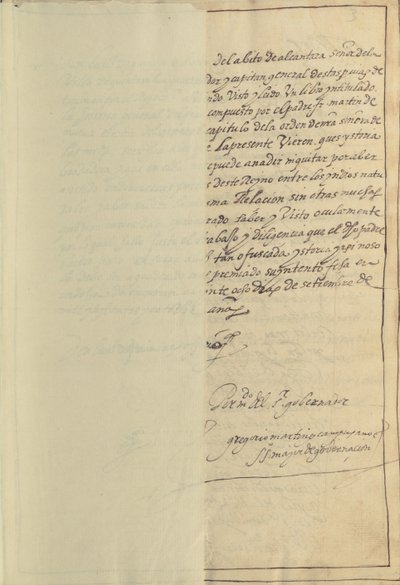 del abito de alcantara señor de la
dor y capitan general destas prouas de
ndo Visto y leido Un libro yntitulado
compuesto por el padre fr martin de
capitulo de la orden de nra señora de
la presente Vieren, ques ystoria
epuede anadir ni quitar por aber
s deste Reyno entre los yndios natu
sma Relacion sin otras muchas
rado saber y Visto oculamente
abajo y diligencia que el dho padre
tan ofuscada ystoria y
e premiado su yntento fecha en
nte ocho dias de setiembre de
años
Por mdo del Sr gobernador
gregorio martinez campuzano
mayor de gobernacion